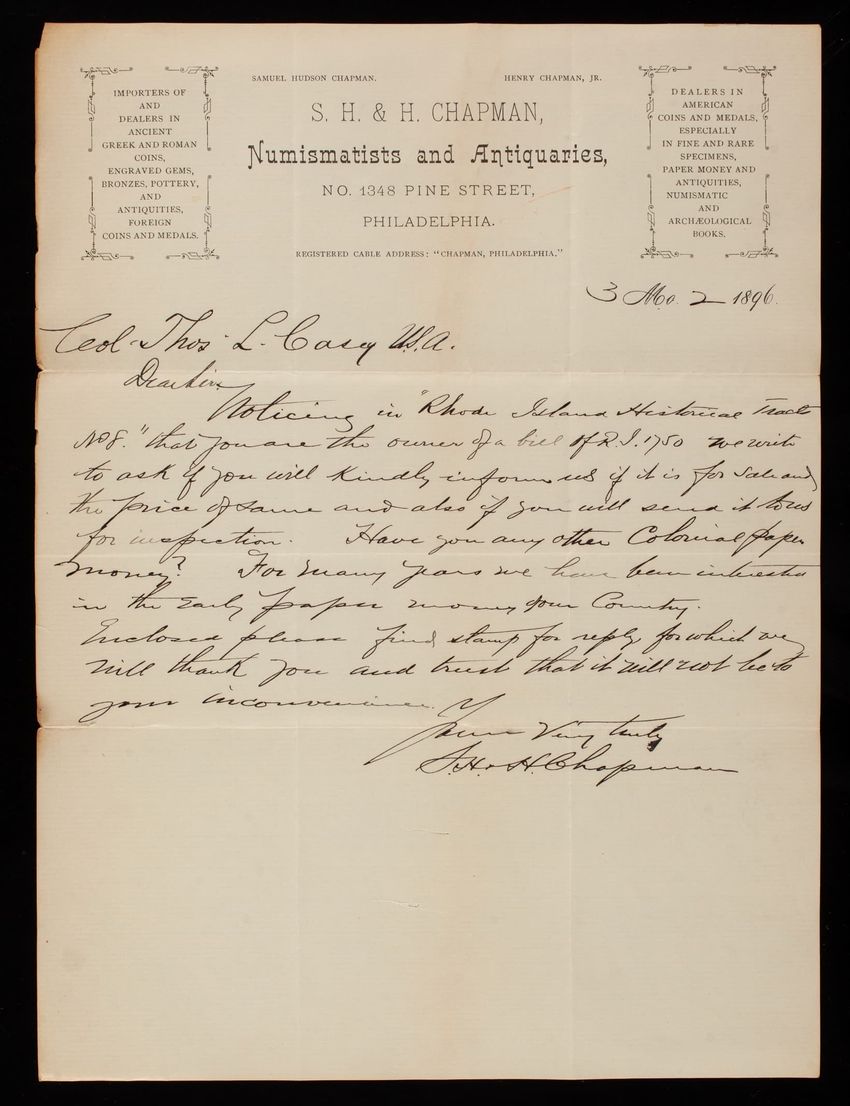 SAMUEL HUDSON CHAPMAN.
HENRY CHAPMAN, JR.
S. H. & H. CHAPMAN,
Numismatists and Antiquaries,
NO. 1348 PINE STREET,
PHILADELPHIA.
REGISTERED CABLE ADDRESS: "CHAPMAN, PHILADELPHIA."
IMPORTERS OF
AND
DEALERS IN
ANCIENT
GREEK AND ROMAN
COINS,
ENGRAVED GEMS,
BRONZES, POTTERY,
AND
ANTIQUITIES,
FOREIGN
COINS AND MEDALS.
DEALERS IN
AMERICAN
COINS AND MEDALS,
ESPECIALLY
IN FINE AND RARE
SPECIMENS,
PAPER MONEY AND
ANTIQUITIES,
NUMISMATIC
AND
ARCHÆOLOGICAL
BOOKS.
3 Mo. 2 1896.
Col. Thos. L. Casey U.S.A.
Dear Sir,
Noticing in "Rhode Island Historical Tracts
No 8." that you are the owner of a bill of R.I. 1750 we write
to ask if you will kindly inform us if it is for sale and
the price of same and also if you will send it to us
for inspection. Have you any other Colonial paper
money? For many years we have been interested
in the early paper money of our Country.
Enclosed please find stamp for reply, for which we
will thank you and trust that it will not be to
your inconvenience.
Yours Very truly
S.H. & H. Chapman